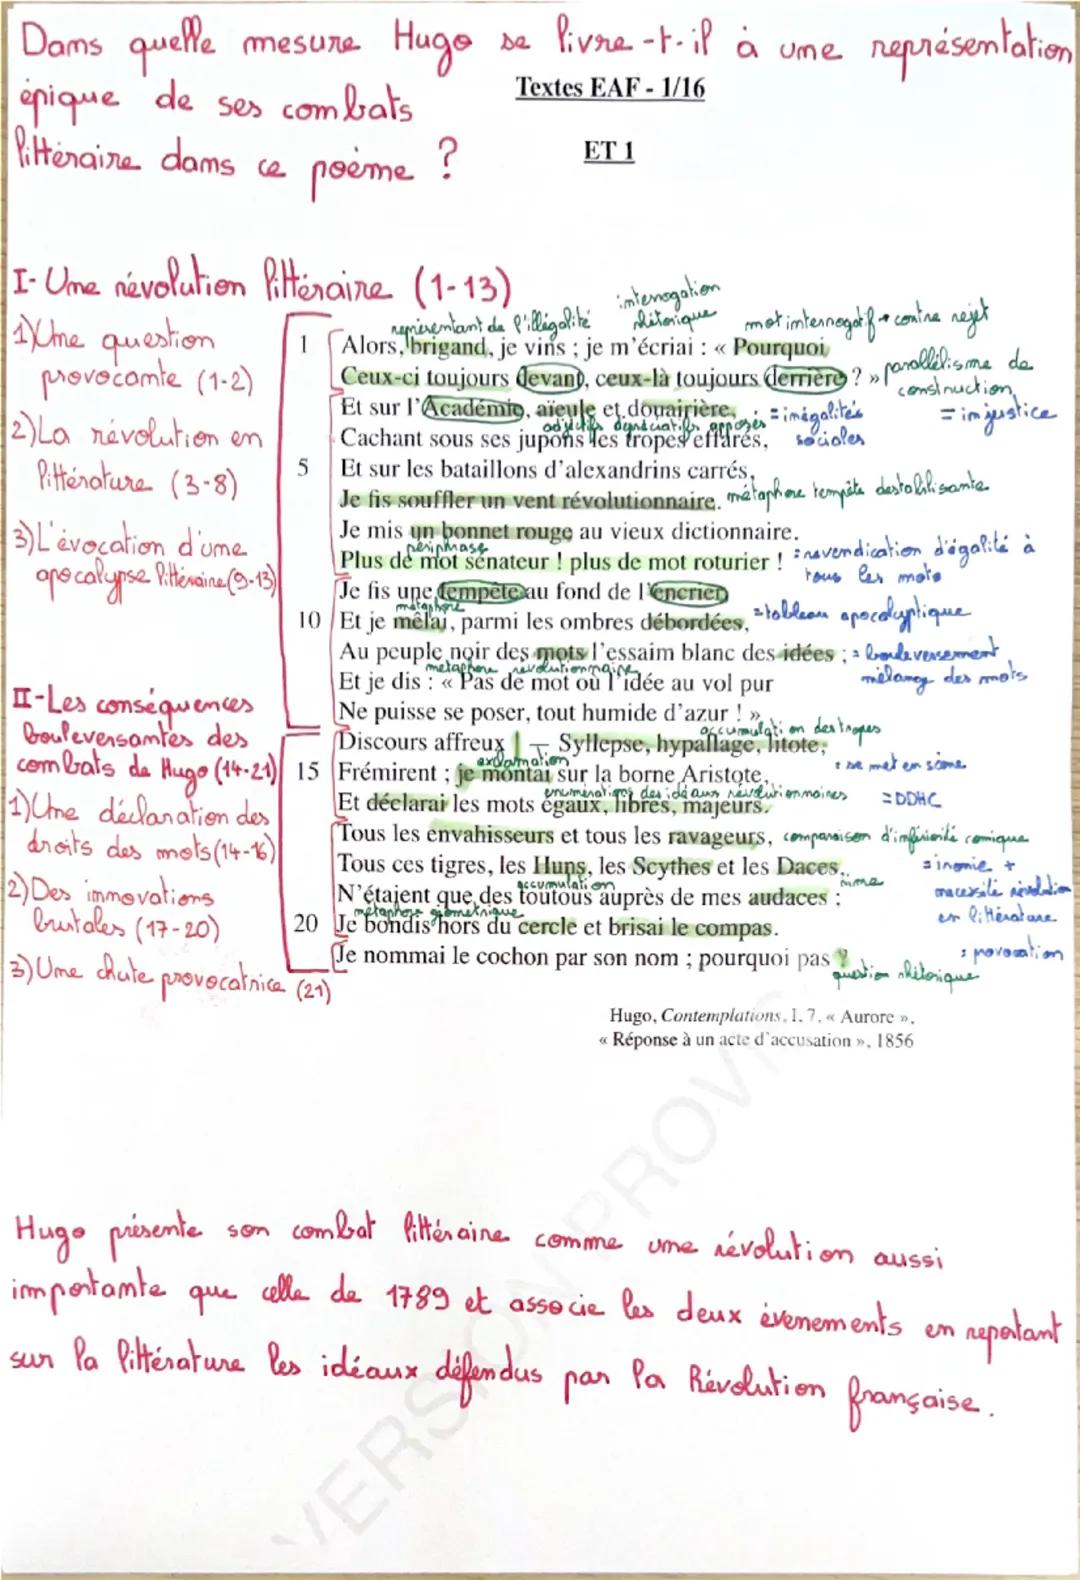 Dans quelle mesure Hugo se livre-t-il à une représentation
épique de ses combats
littéraire dans ce poème ?
Textes EAF - 1/16
ET 1
I- Une révolution littéraire (1-13)
1) Une question
provocante (1-2)
2) La révolution en
littérature (3-8)
3) L'évocation d'une
apocalypse littéraire (9-13)
II- Les conséquences
bouleversantes des
combats de Hugo (14-21)
1) Une déclaration des
droits des mots (14-16)
2) Des innovations
brutales (17-20)
3) Une chute provocatrice (21)
représentant de l'illégalité
interrogation
rhétorique
mot interrogatif → contre rejet
1 Alors, brigand, je vins ; je m'écriai : « Pourquoi
Ceux-ci toujours devant, ceux-là toujours derrière ? »
parallélisme de
construction
= injustice
Et sur l'Académie, aïeule et douairière,
adjectifs dépréciatifs opposés = inégalités
sociales
Cachant sous ses jupons les tropes effarés,
5 Et sur les bataillons d'alexandrins carrés,
Je fis souffler un vent révolutionnaire. métaphore tempête déstabilisante
Je mis un bonnet rouge au vieux dictionnaire.
périphrase
Plus de mot sénateur ! plus de mot roturier ! = revendication d'égalité à
tous les mots
Je fis une tempête au fond de l'encrier,
métaphore
10 Et je mêlai, parmi les ombres débordées, = tableau apocalyptique
Au peuple noir des mots l'essaim blanc des idées ; = bouleversement
mélange des mots
métaphore révolutionnaire
Et je dis : « Pas de mot où l'idée au vol pur
Ne puisse se poser, tout humide d'azur ! »
accumulation des tropes
Discours affreux ! – Syllepse, hypallage, litote,
exclamation
15 Frémirent ; je montai sur la borne Aristote, : se met en scène
énumération des idéaux révolutionnaires
Et déclarai les mots égaux, libres, majeurs. = DDHC
Tous les envahisseurs et tous les ravageurs, comparaison d'infériorité comique
Tous ces tigres, les Huns, les Scythes et les Daces,
= ironie +
nécessité révolution
en littérature
accumulation
rime
N'étaient que des toutous auprès de mes audaces ;
métaphore géométrique
20 Je bondis hors du cercle et brisai le compas.
Je nommai le cochon par son nom ; pourquoi pas ?
: provocation
question rhétorique
Hugo, Contemplations, I, 7, « Aurore »,
« Réponse à un acte d'accusation », 1856
Hugo présente son combat littéraire comme une révolution aussi
importante que celle de 1789 et associe les deux évenements en reportant
sur la littérature les idéaux défendus par la Révolution française.
VERSION PROVI